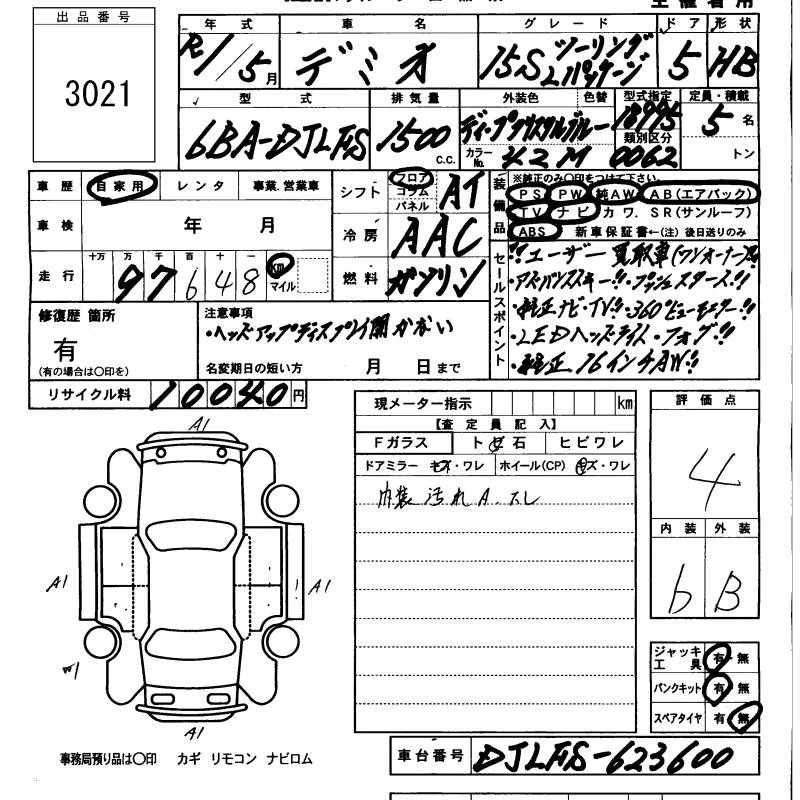 出品番号
3021
年式 車名 グレード ドア 形状
R1/5月 デミオ 15S ツーリング Lパッケージ 5 HB
型式 排気量 外装色 色替 型式指定 定員・積載
6BA-DJLFS 1500 c.c. ディープクリスタルブルー 18975 5 名
カラーNo. 42M 類別区分 0062 トン
車歴 自家用 レンタ 事業.営業車
シフト フロア コラム パネル AT
車検 年 月
冷房 AAC
走行 十万 万 千 百 十 一 km マイル
97648
燃料 ガソリン
装備品 ※純正のみ○印をつけて下さい。
PS PW 純AW AB(エアバック)
TV ナビ カワ. SR(サンルーフ)
ABS 新車保証書←(注)後日送りのみ
セールスポイント
!!ユーザー買取車(ワンオーナー)!!
・アドバンスキー!!・プッシュスタート!!
・純正ナビ・TV!!・360°ビューモニター!!
・LEDヘッドライト・フォグ!!
・純正16インチAW!!
修復歴 箇所
有
(有の場合は○印を)
注意事項
・ヘッズアップディスプレイ開かない
名変期日の短い方 月 日まで
リサイクル料 10040円
現メーター指示 km
【査定員記入】
Fガラス トビ石 ヒビワレ
ドアミラー キズ・ワレ ホイール(CP) キズ・ワレ
内装汚れA.スレ
評価点
4
内装 外装
b B
ジャッキ工具 有・無
パンクキット 有・無
スペアタイヤ 有・無
A1
A1
A1
W1
A1
事務局預り品は○印 カギ リモコン ナビロム
車台番号 DJLFS-623600